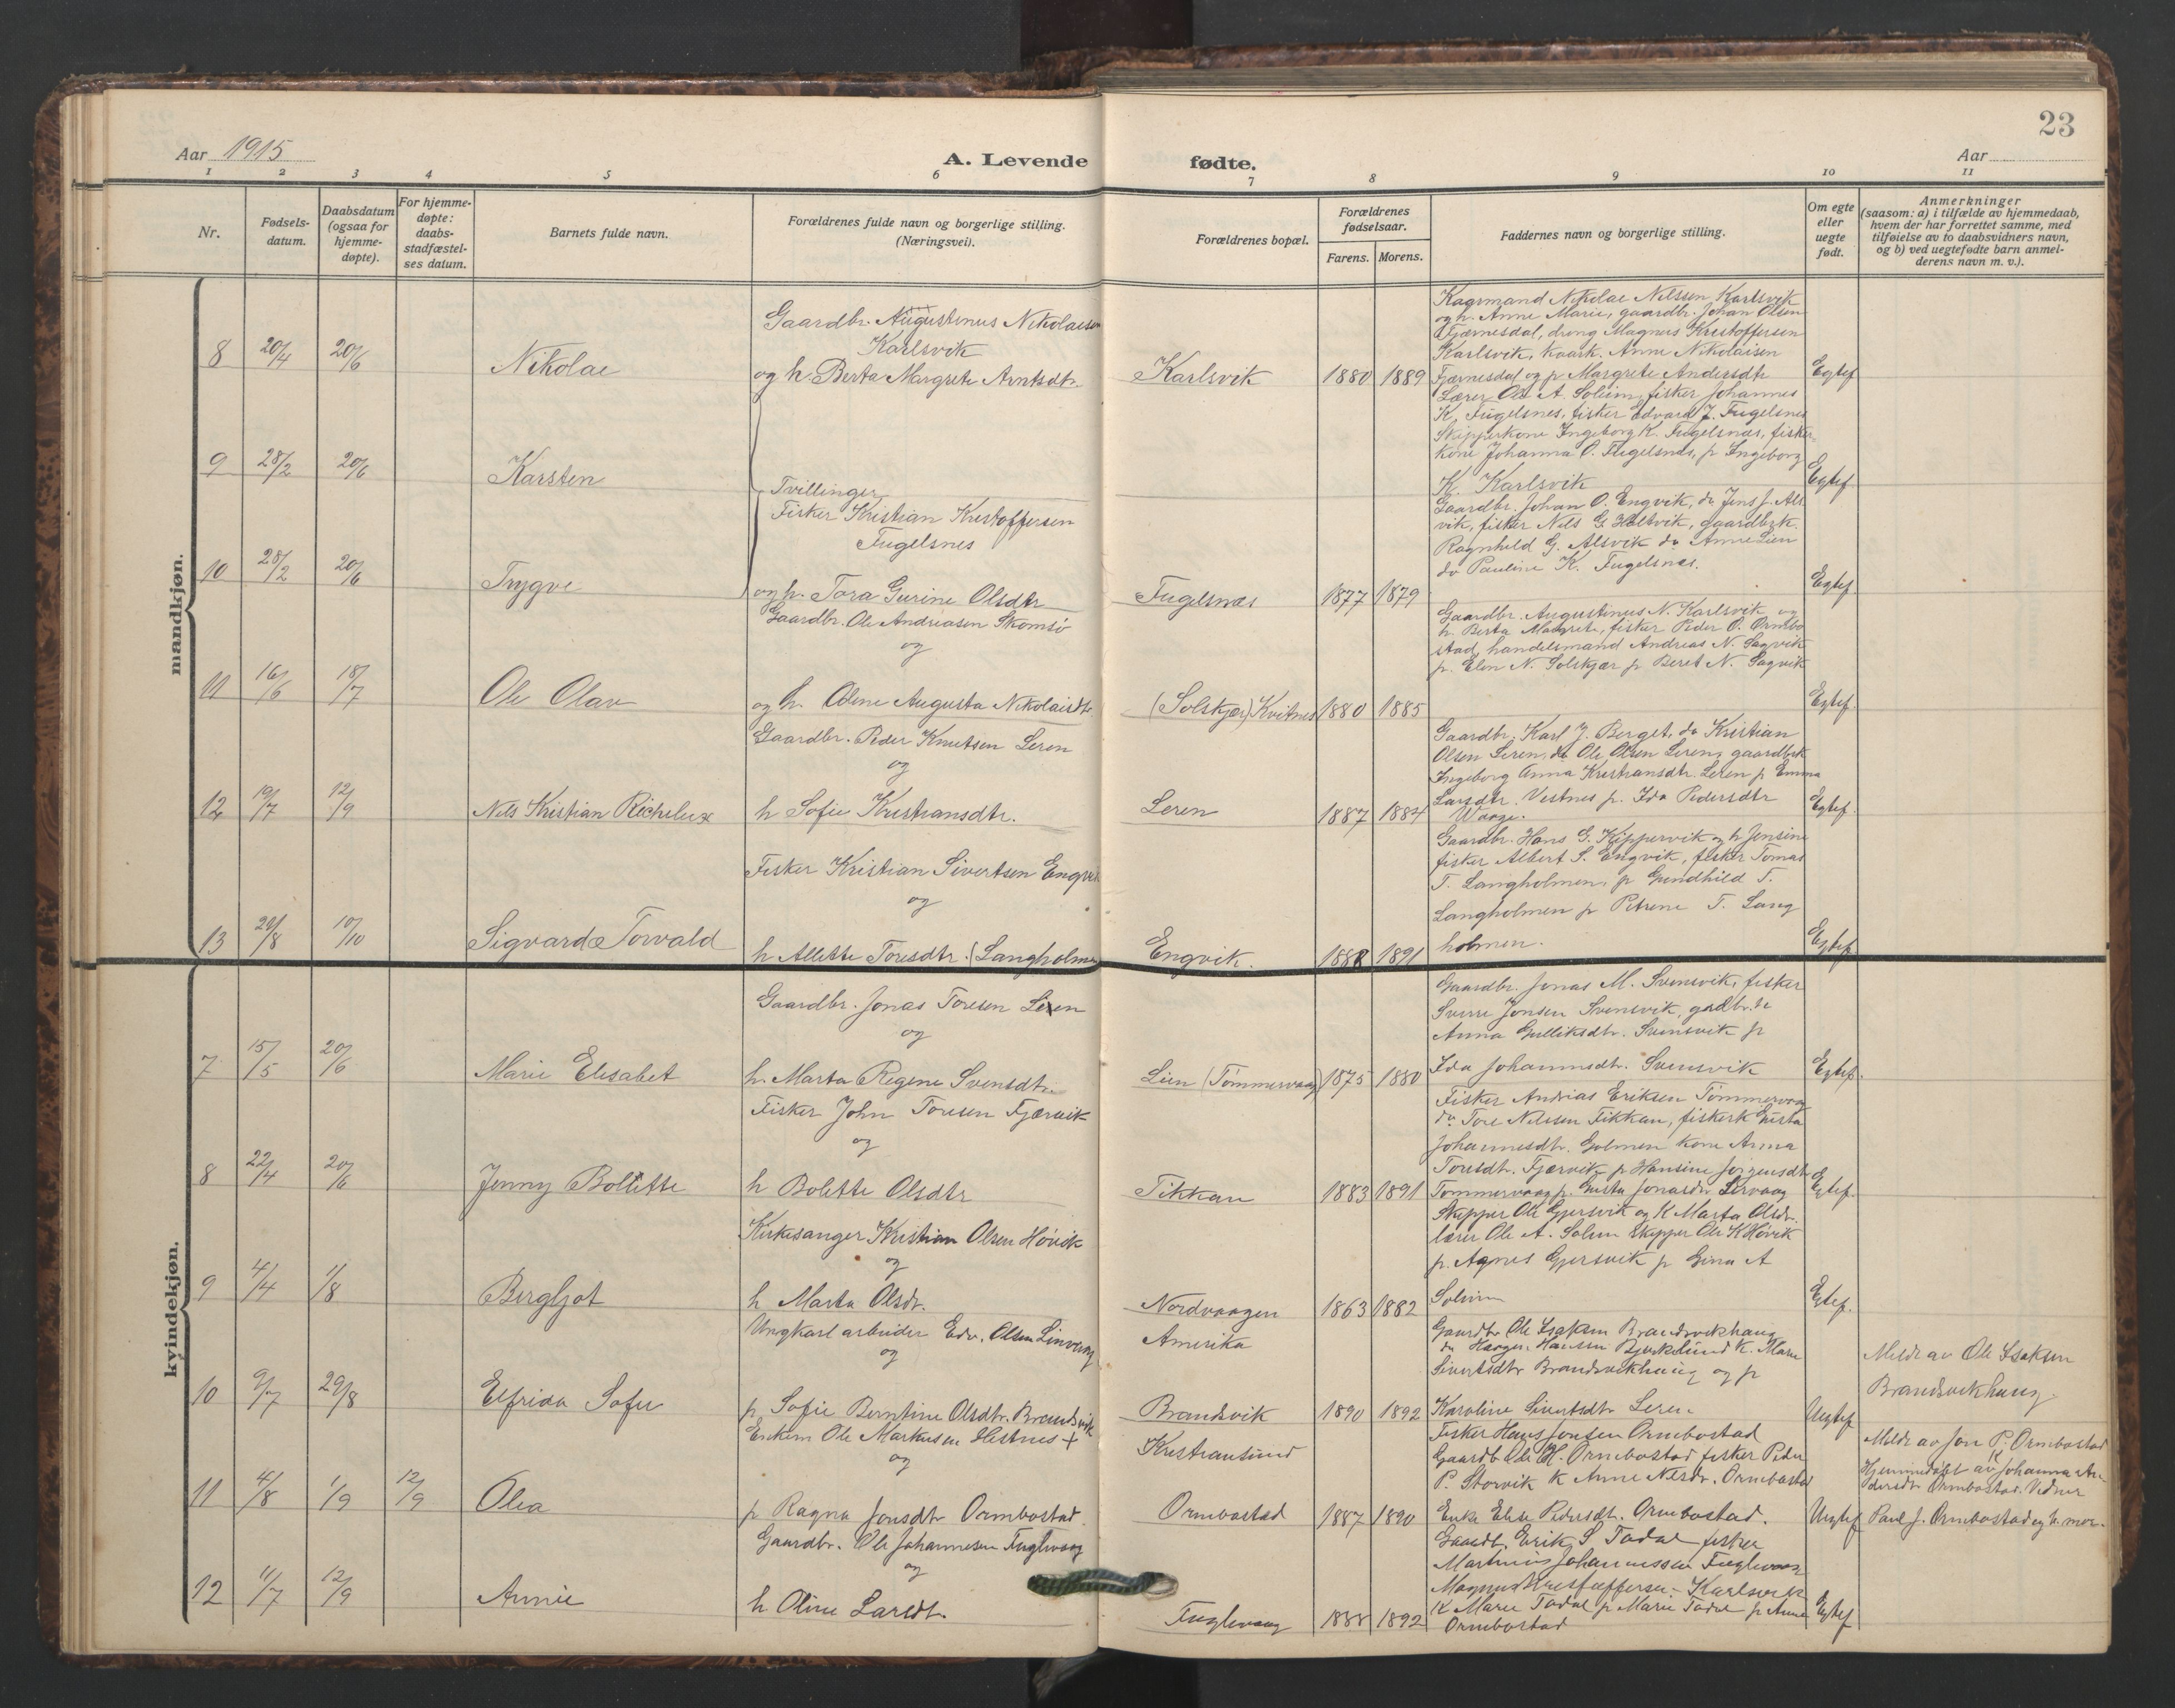 23
Aar 1915
A. Levende fødte.
Aar
1 2 3 4 5 6 7 8 9 10 11
Nr.
Fødsels-
datum.
Daabsdatum
(ogsaa for
hjemme-
døpte).
For hjemme-
døpte:
daabs-
stadfæstel-
ses datum.
Barnets fulde navn.
Forældrenes fulde navn og borgerlige stilling.
(Næringsvei).
Forældrenes bopæl.
Forældrenes
fødselsaar.
Farens. Morens.
Faddernes navn og borgerlige stilling.
Om egte
eller
uegte
født.
Anmerkninger
(saasom: a) i tilfælde av hjemmedaab,
hvem der har forrettet samme, med
tilføielse av to daabsvidners navn,
og b) ved uegtefødte barn anmel-
derens navn m. v.).
mandkjøn.
8 20/4 20/6 Nikolai
Gaardbr. Augustinus Nikolaisen
Karlsvik
og h. Berta Margrete Arntsdtr.
Karlsvik 1880 1889
Nikolai Nilssen Karlsvik
og h. Anne Marie, gaardbr. Johan Olsen
Fjærnesdal, dreng Magnus Kristoffersen
Karlsvik, Anne Nikolaisen
Fjærnesdal og p Margrete Andersdtr
Egtef
9 28/2 20/6 Karsten
Lærer Ole A. Solem, fisker Johannes
K. Fugelsnes, fisker Edvard J. Fugelsnes
Skipperkone Ingeborg K. Fugelsnæs, fisker-
kone Johanna O. Fugelsnes, p Ingeborg
K. Karlsvik
Egtef
Tvillinger
Fisker Kristian Kristoffersen
Fugelsnes
10 28/2 20/6 Trygve
og h. Tora Gurine Olsdtr
Fugelsnæs 1877 1879
Gaardbr. Johan O. Engvik, do Jens J. Als
vik, fisker Nils G. Hallvik, gaardbrk.
Ragnhild G. Alsvik do Anne Lien
do Pauline K. Fugelsnæs.
Egtef
11 16/6 18/7 Ole Olav
Gaardbr. Ole Andreasen Skomsö
og
og h. Oline Augusta Nikolaisdtr.
(Solskjær) Kvitnes 1880 1885
Gaardbr. Augustinus N. Karlsvik og
h. Berta Margrete, fisker Peder O. Ormbo
stad, handelsmand Andreas N. Sagvik
p. Elen N. Solskjær p Beret N. Sagvik
Egtef
12 19/7 12/9 Nils Kristian
Gaardbr. Peder Knutsen Leren
og
h Sofie Kristiansdtr.
Leren 1887 1884
Gaardbr. Karl J. Berget, do Kristian
Olsen Leren, do Ole Olsen Leren, gaardbrk
Ingeborg Anna Kristiansdtr. Leren p Emma
Larsdtr. Vestnes p. Ida Pedersdtr
Waage.
Egtef.
13 29/8 10/10 Sigvard Torvald
Fisker Kristian Sivertsen Engvik
og
h Allette Toresdtr. (Langholmen
Engvik. 1888 1891
Gaardbr. Hans G. Kippervik og h Jensine
fisker Albert S. Engvik, fisker Tomas
T. Langholmen, p Gundhild T.
Langholmen p Petrene T. Lang
holmen.
Egtef
kvindekjøn.
7 15/5 20/6 Marie Elisabet
Gaardbr. Jonas Toresen Lien
og
h. Marta Regine Svensdtr.
Lien (Tömmervaag) 1875 1880
Gaardbr. Jonas M. Svensvik, fisker
Sverre Jonsen Svensvik, gardbr.k
Anna Gulliksdtr. Svensvik p
Ida Johannsdtr. Svensvik
Egtef.
8 22/4 20/6 Jenny Bolette
Fisker John Toresen Fjærvik
og
h Bolette Olsdtr
Tikkan 1883 1891
Fisker Andrias Eriksen Tömmervaag
do Tore Nilssen Tikkan, fiskerk Gusta
Johannesdtr. Golmen kone Anna
Toresdtr. Fjærvik p Hansine Jörgensdtr
Tommervaag p. Gusta Jonasdtr Lervaag
Egtef.
9 4/4 1/8 Bergljot
Kirkesanger Kristian Olsen Hövik
og
h Marta Olsdr.
Nordvaagen 1863 1882
Skipper Ole Gjersvik og K Marta Olsdr.
lærer Ole A. Solem Skipper Ole K Hövik
p. Agnes Gjersvik p Gina A
Solem
Egtef.
10 9/7 29/8 Elfrida Sofie
Ungkarl arbeider Edv. Olsen Linvaag
og
p. Sofie Berntine Olsdtr. Brandsvik
Amerika
Brandsvik 1890 1892
Gaardbr Ole Isaksen Brandsvikhaug
do Hansen Bjerkelund K. Marie
Sivertsdtr Brandsvikhaug og p
Karoline Sivertsdtr Leren
Uegtef
Meldt av Ole Isaksen
Brandsvikhaug.
11 4/8 1/9 12/9 Olea
Enkem Ole Markusen Hestnes +
og
p Ragna Jonsdtr Ormbostad.
Kristiansund
Ormbostad 1887 1890
Fisker Hans Jonsen Ormbostad
Gaardb Ole H. Ormbostad fisker Peder
P. Storvik K Anne Nilsdr. Ormbostad
Enke Elise Pedersdtr. Ormbostad.
Uegtef
Meldt av Jon P. Ormbostad
Hjemmedöbt av K Johanna An-
dersdtr Ormbostad. Vidner
Paul J. Ormbostad og h. mor.
12 11/7 12/9 Annie
Gaardbr. Ole Johannesen Fuglvaag
og
h Oline Larsdt.
Fuglevaag 1888 1892
Gaardb. Erik S Todal fisker
Martinus Johannessen Fuglevaag
Magnus Kristoffersen Karlsvik
K Marie Todal p Marie Todal p Anna
Ormbostad
Egtef